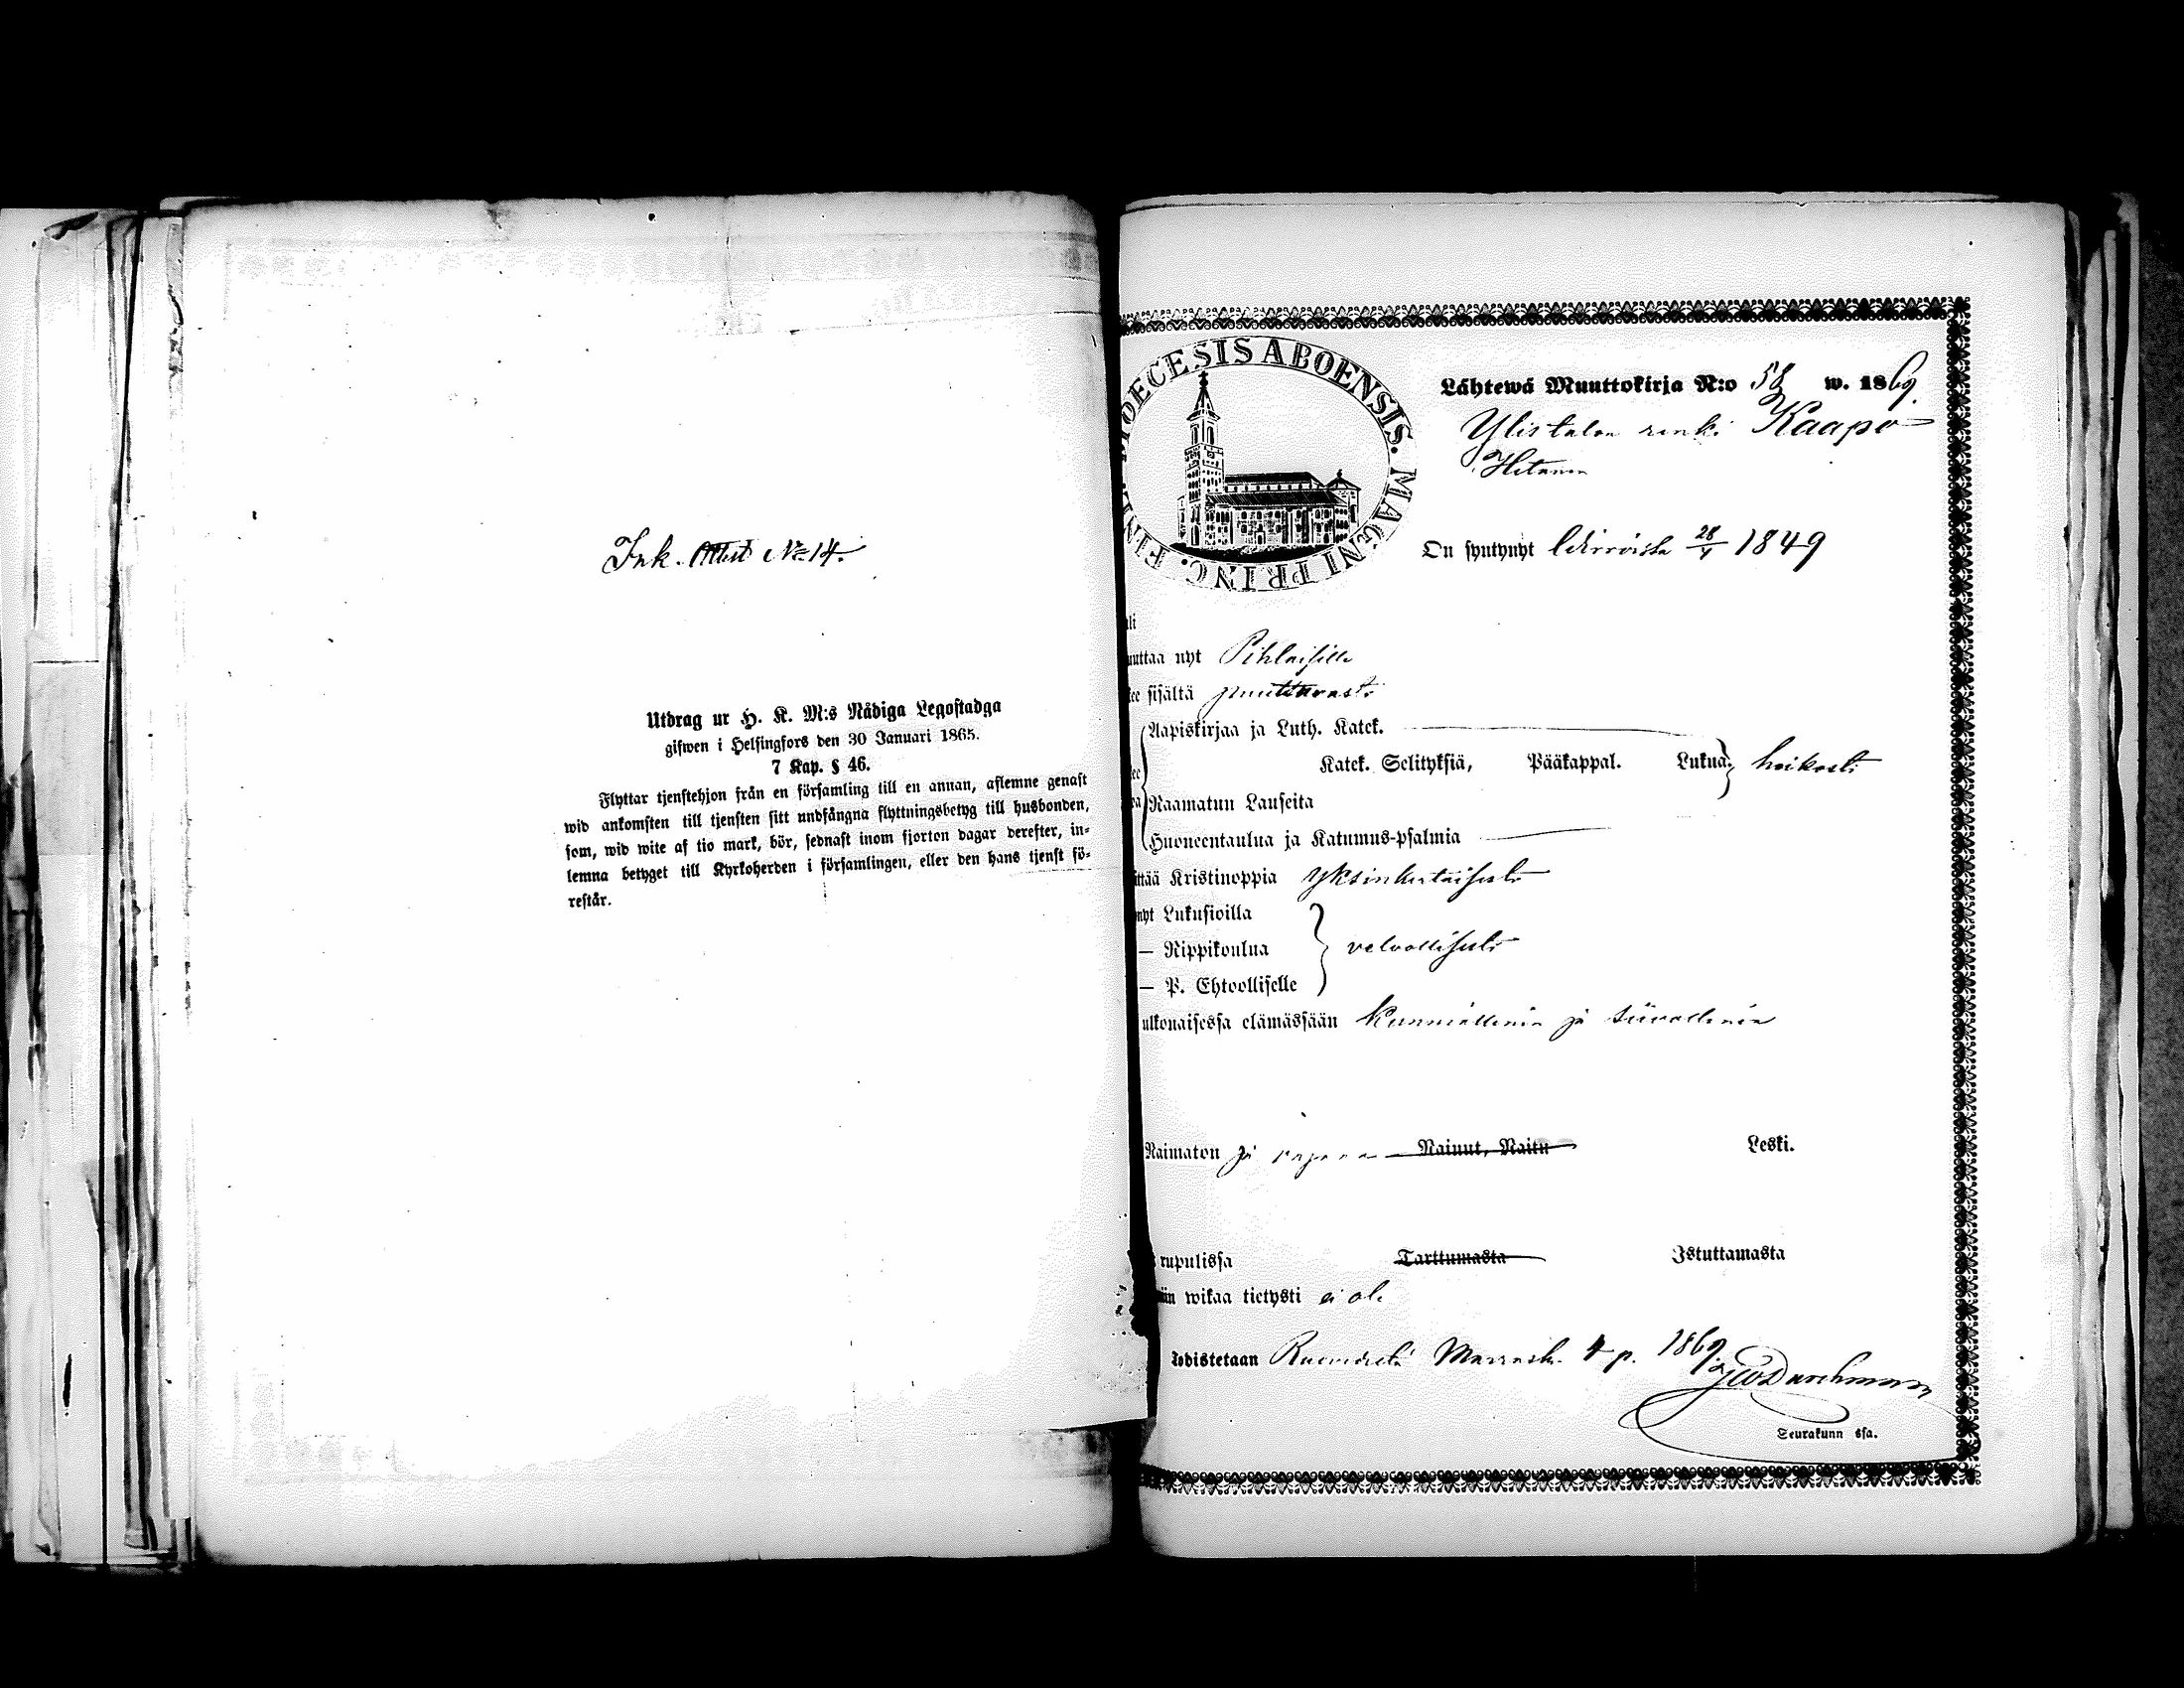 Ink. Attest №14.
Utdrag ur H. K. M:s Nådiga Legostadga
gifwen i Helsingfors den 30 Januari 1865.
7 Kap. § 46.
Flyttar tjenstehjon från en församling till en annan, aflemne genast
wid ankomsten till tjensten sitt undfångna flyttningsbetyg till husbonden,
som, wid wite af tio mark, bör, sednast inom fjorton dagar derefter, in-
lemna betyget till Kyrkoherden i församlingen, eller den hans tjenst fö-
restår.
DIOECESIS ABOENSIS. MAGNI PRINC. FINL
Lähtewä Muuttokirja N:o 58 w. 1869.
Ylistalon renki Kaapo
Hetanen
On syntynyt 28/V 1849
uttaa nyt Pihlaisille
sisältä puuttuvasti
Aapiskirjaa ja Luth. Katek.
Katek. Selityksiä, Pääkappal. Lukua. heikosti
Raamatun Lauseita
Huoneentaulua ja Katumus-psalmia
ittää Kristinoppia yksinkertaisesti
nyt Lukusioilla
— Rippikoulua velvollisesti
— P. Ehtoolliselle
ulkonaisessa elämässään kunniallinen ja siivollinen
Naimaton ja vapaa Nainut, Naitu Leski.
rupulissa Tarttumasta Istuttamasta
wikaa tietysti ei ole
Todistetaan Ruovedellä Marrask. 4 p. 1869
Seurakunn ssa.